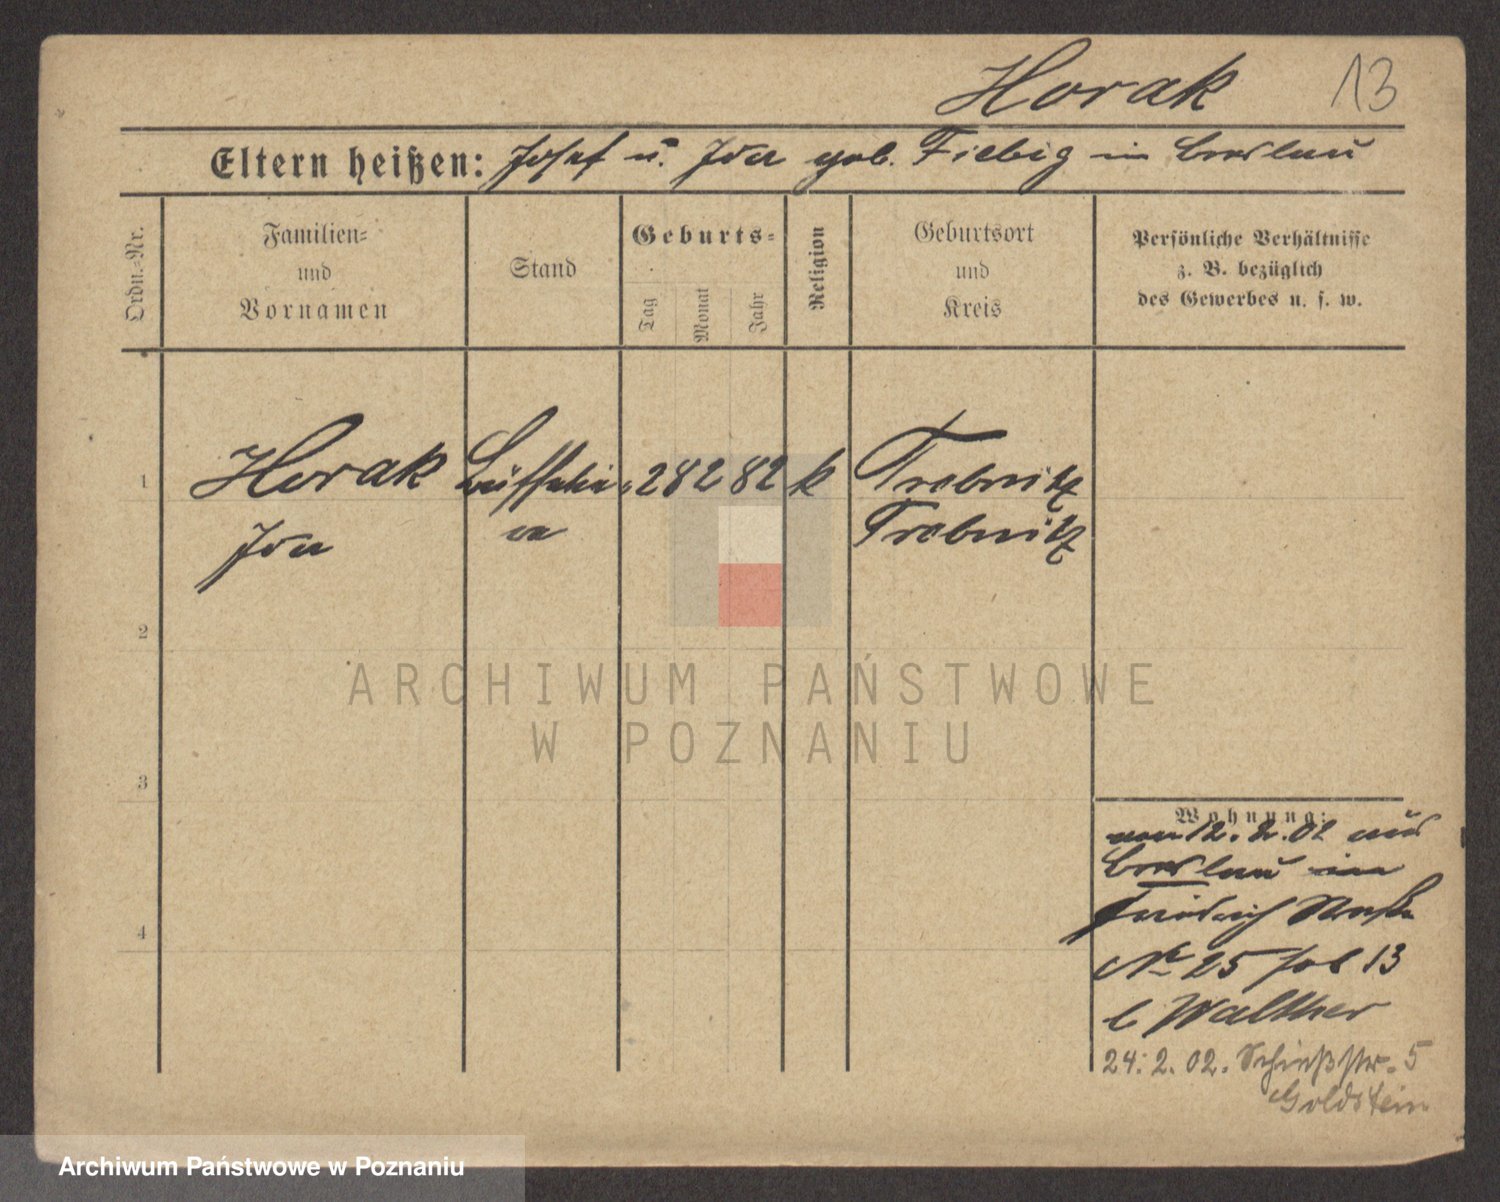 Horak 13
Eltern heißen: Josef u. Ida geb. Fiebig in Breslau
Ordn.-Nr.
Familien-
und
Vornamen
Stand
Geburts-
Tag
Monat
Jahr
Religion
Geburtsort
und
Kreis
Persönliche Verhältnisse
z. B. bezüglich
des Gewerbes u. s. w.
1 Horak 28 2 82 k Trebnitz
Ida Trebnitz
2
3
4
Wohnung:
von 12. 2. 02 aus
Breslau in
Friedrich Straße
No 25 13
b Walther
24. 2. 02. Schießstr. 5
Goldstein
ARCHIWUM PAŃSTWOWE
W POZNANIU
Archiwum Państwowe w Poznaniu